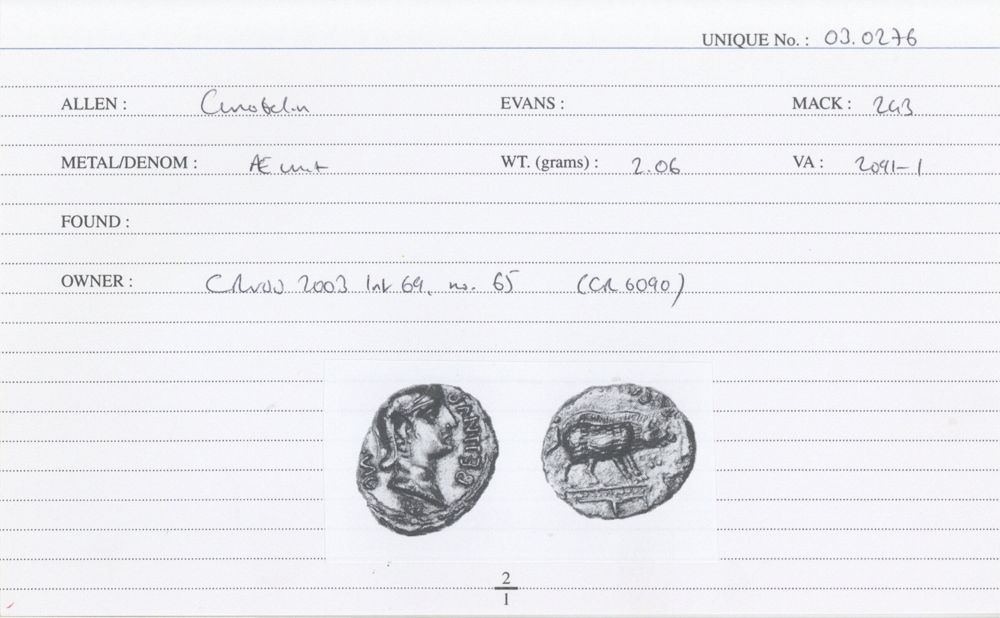 UNIQUE No. : 03.0276
ALLEN : Cunobelin EVANS : MACK : 243
METAL/DENOM : Æ unit WT. (grams) : 2.06 VA : 2091-1
FOUND :
OWNER : 2003 list 69, no. 65 (CR 6090)
2
1